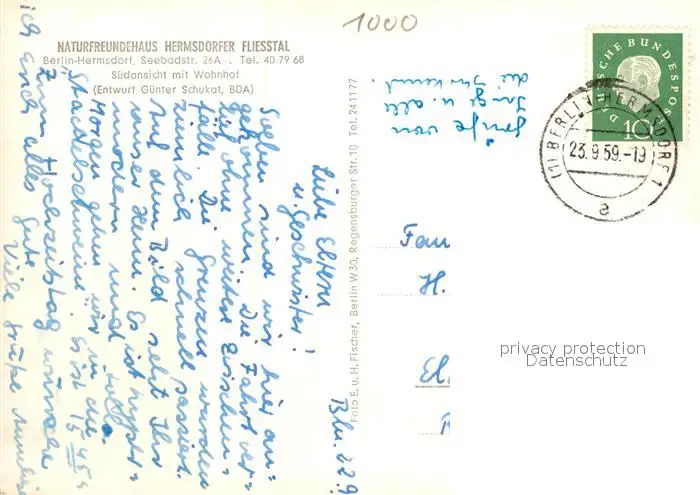 1000
NATURFREUNDEHAUS HERMSDORFER FLIESSTAL
Berlin-Hermsdorf, Seebadstr. 26A . Tel. 40 79 68
Südansicht mit Wohnhof
(Entwurf Günter Schukat, BDA)
DEUTSCHE BUNDESPOST
10
(1) BERLIN-HERMSDORF 1
23.9.59.-19
a
Foto E. u. H. Fischer, Berlin W 30, Regensburger Str. 10 Tel. 241177
Bln. 22.9.
Liebe Eltern
u. Geschwister!
Soeben sind wir hier an-
gekommen. Die Fahrt ver-
lief ohne weitere Zwischen-
fälle. Die Grenzen wurden
ziemlich schnell passiert.
Auf dem Bild seht Ihr
unser Heim. Es ist
modern und toll.
Morgen gehen wir in die
Stachelschweine. Es ist 15.45
Zum Hochzeitstag wünsche
ich Euch alles gute
Viele Grüße
Grüße von
Inge u. alle
die
Fam
H.
privacy protection
Datenschutz